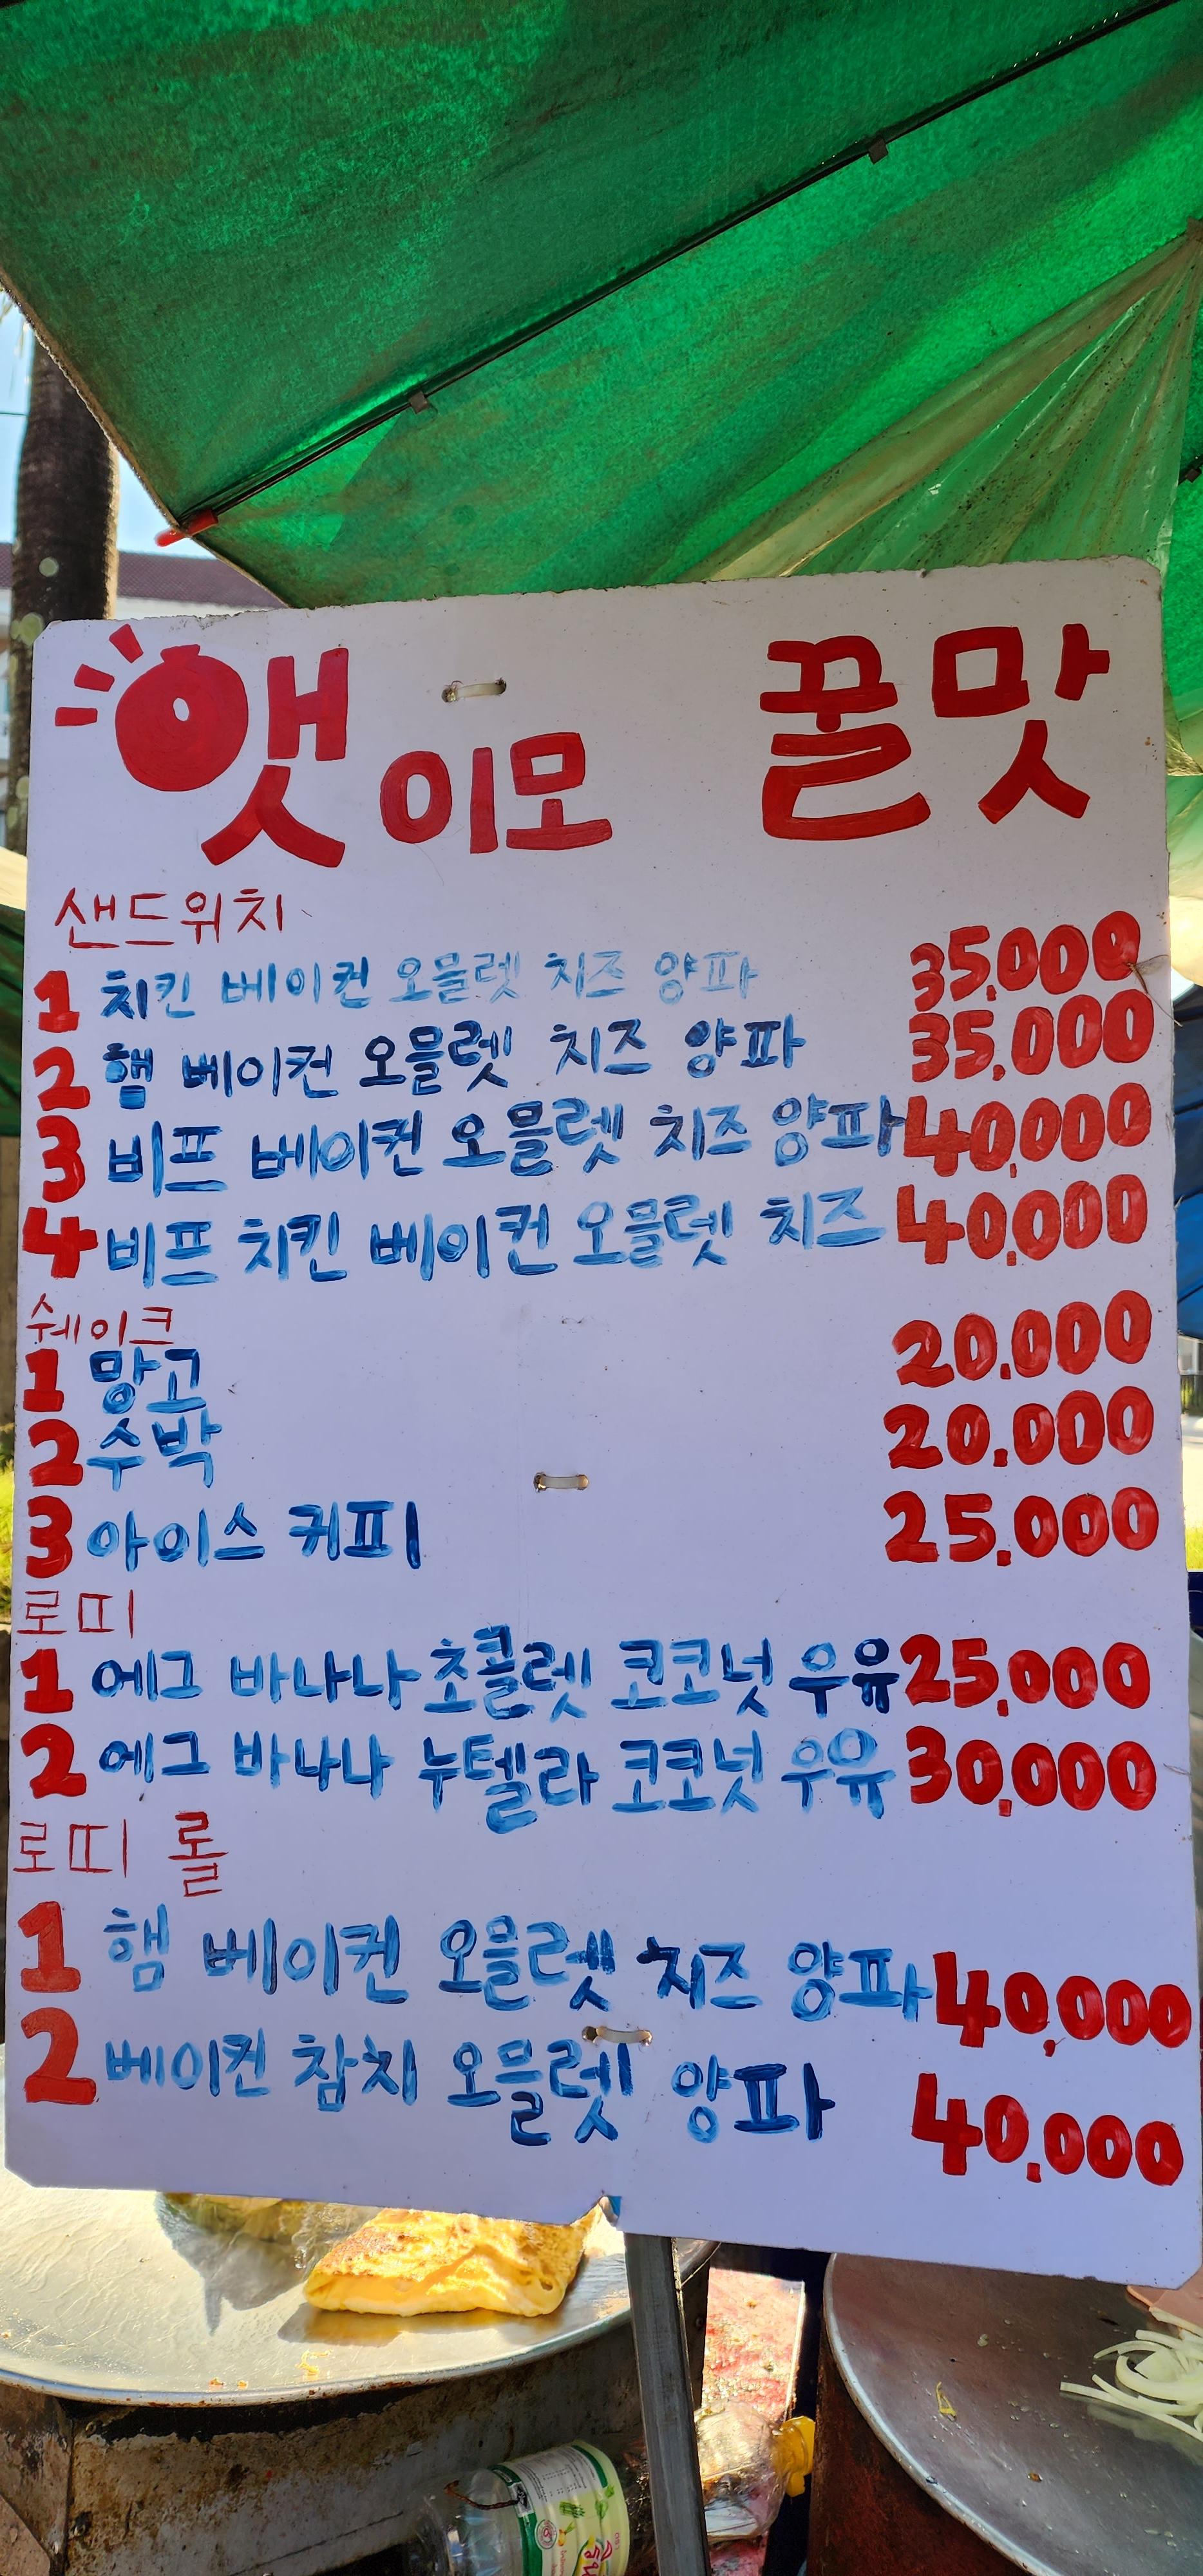 앳 이모 꿀맛
샌드위치
1 치킨 베이컨 오믈렛 치즈 양파 35,000
2 햄 베이컨 오믈렛 치즈 양파 35,000
3 비프 베이컨 오믈렛 치즈 양파 40,000
4 비프 치킨 베이컨 오믈렛 치즈 40,000
쉐이크
1 망고 20.000
2 수박 20.000
3 아이스 커피 25.000
로띠
1 에그 바나나 초콜렛 코코넛 우유 25,000
2 에그 바나나 누텔라 코코넛 우유 30,000
로띠 롤
1 햄 베이컨 오믈렛 치즈 양파 40,000
2 베이컨 참치 오믈렛 양파 40,000